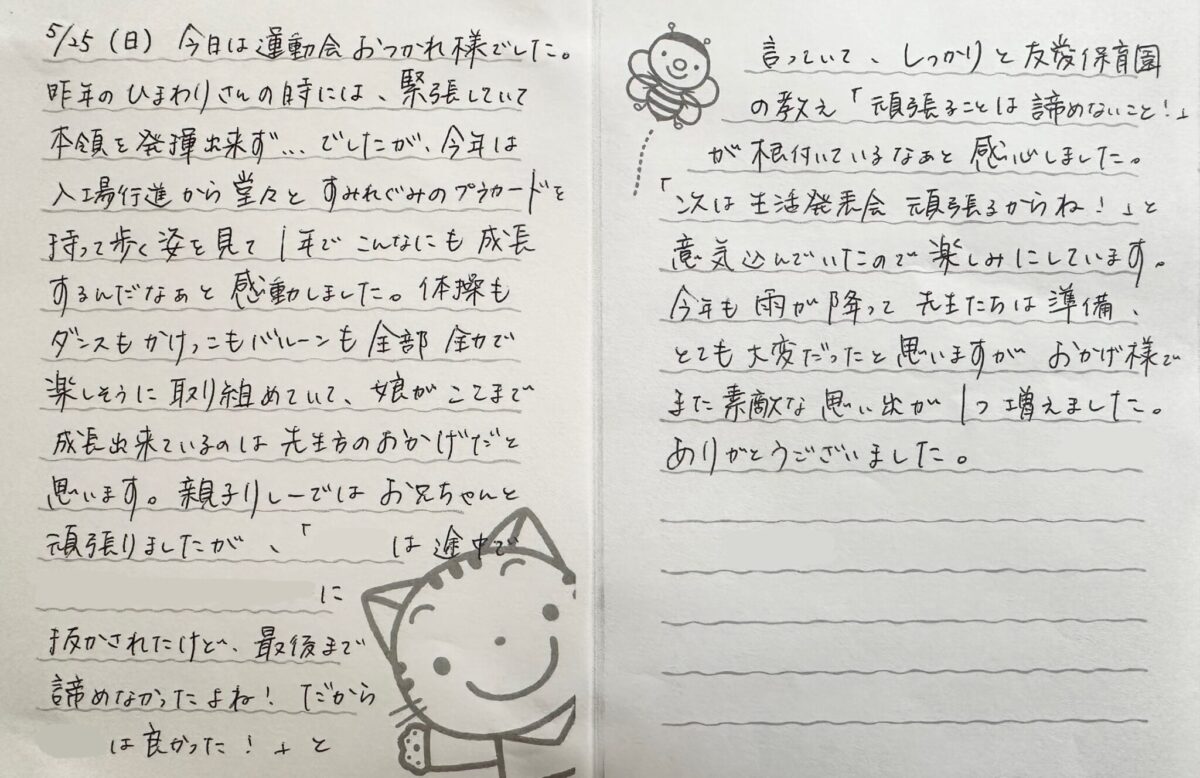 5/25(日) 今日は運動会おつかれ様でした。
昨年のひまわりさんの時には、緊張していて
本領を発揮出来ず…でしたが、今年は
入場行進から堂々とすみれぐみのプラカードを
持って歩く姿を見て1年でこんなにも成長
するんだなぁと感動しました。体操も
ダンスもかけっこもバルーンも全部全力で
楽しそうに取り組めていて、娘がここまで
成長出来ているのは先生方のおかげだと
思います。親子リレーではお兄ちゃんと
頑張りましたが、「 は途中で
に
抜かされたけど、最後まで
諦めなかったよね!だから
は良かった!」と
言っていて、しっかりと友愛保育園
の教え「頑張ることは諦めないこと!」
が根付いているなぁと感心しました。
「次は生活発表会頑張るからね!」と
意気込んでいたので楽しみにしています。
今年も雨が降って先生たちは準備、
とても大変だったと思いますがおかげ様で
また素敵な思い出が1つ増えました。
ありがとうございました。